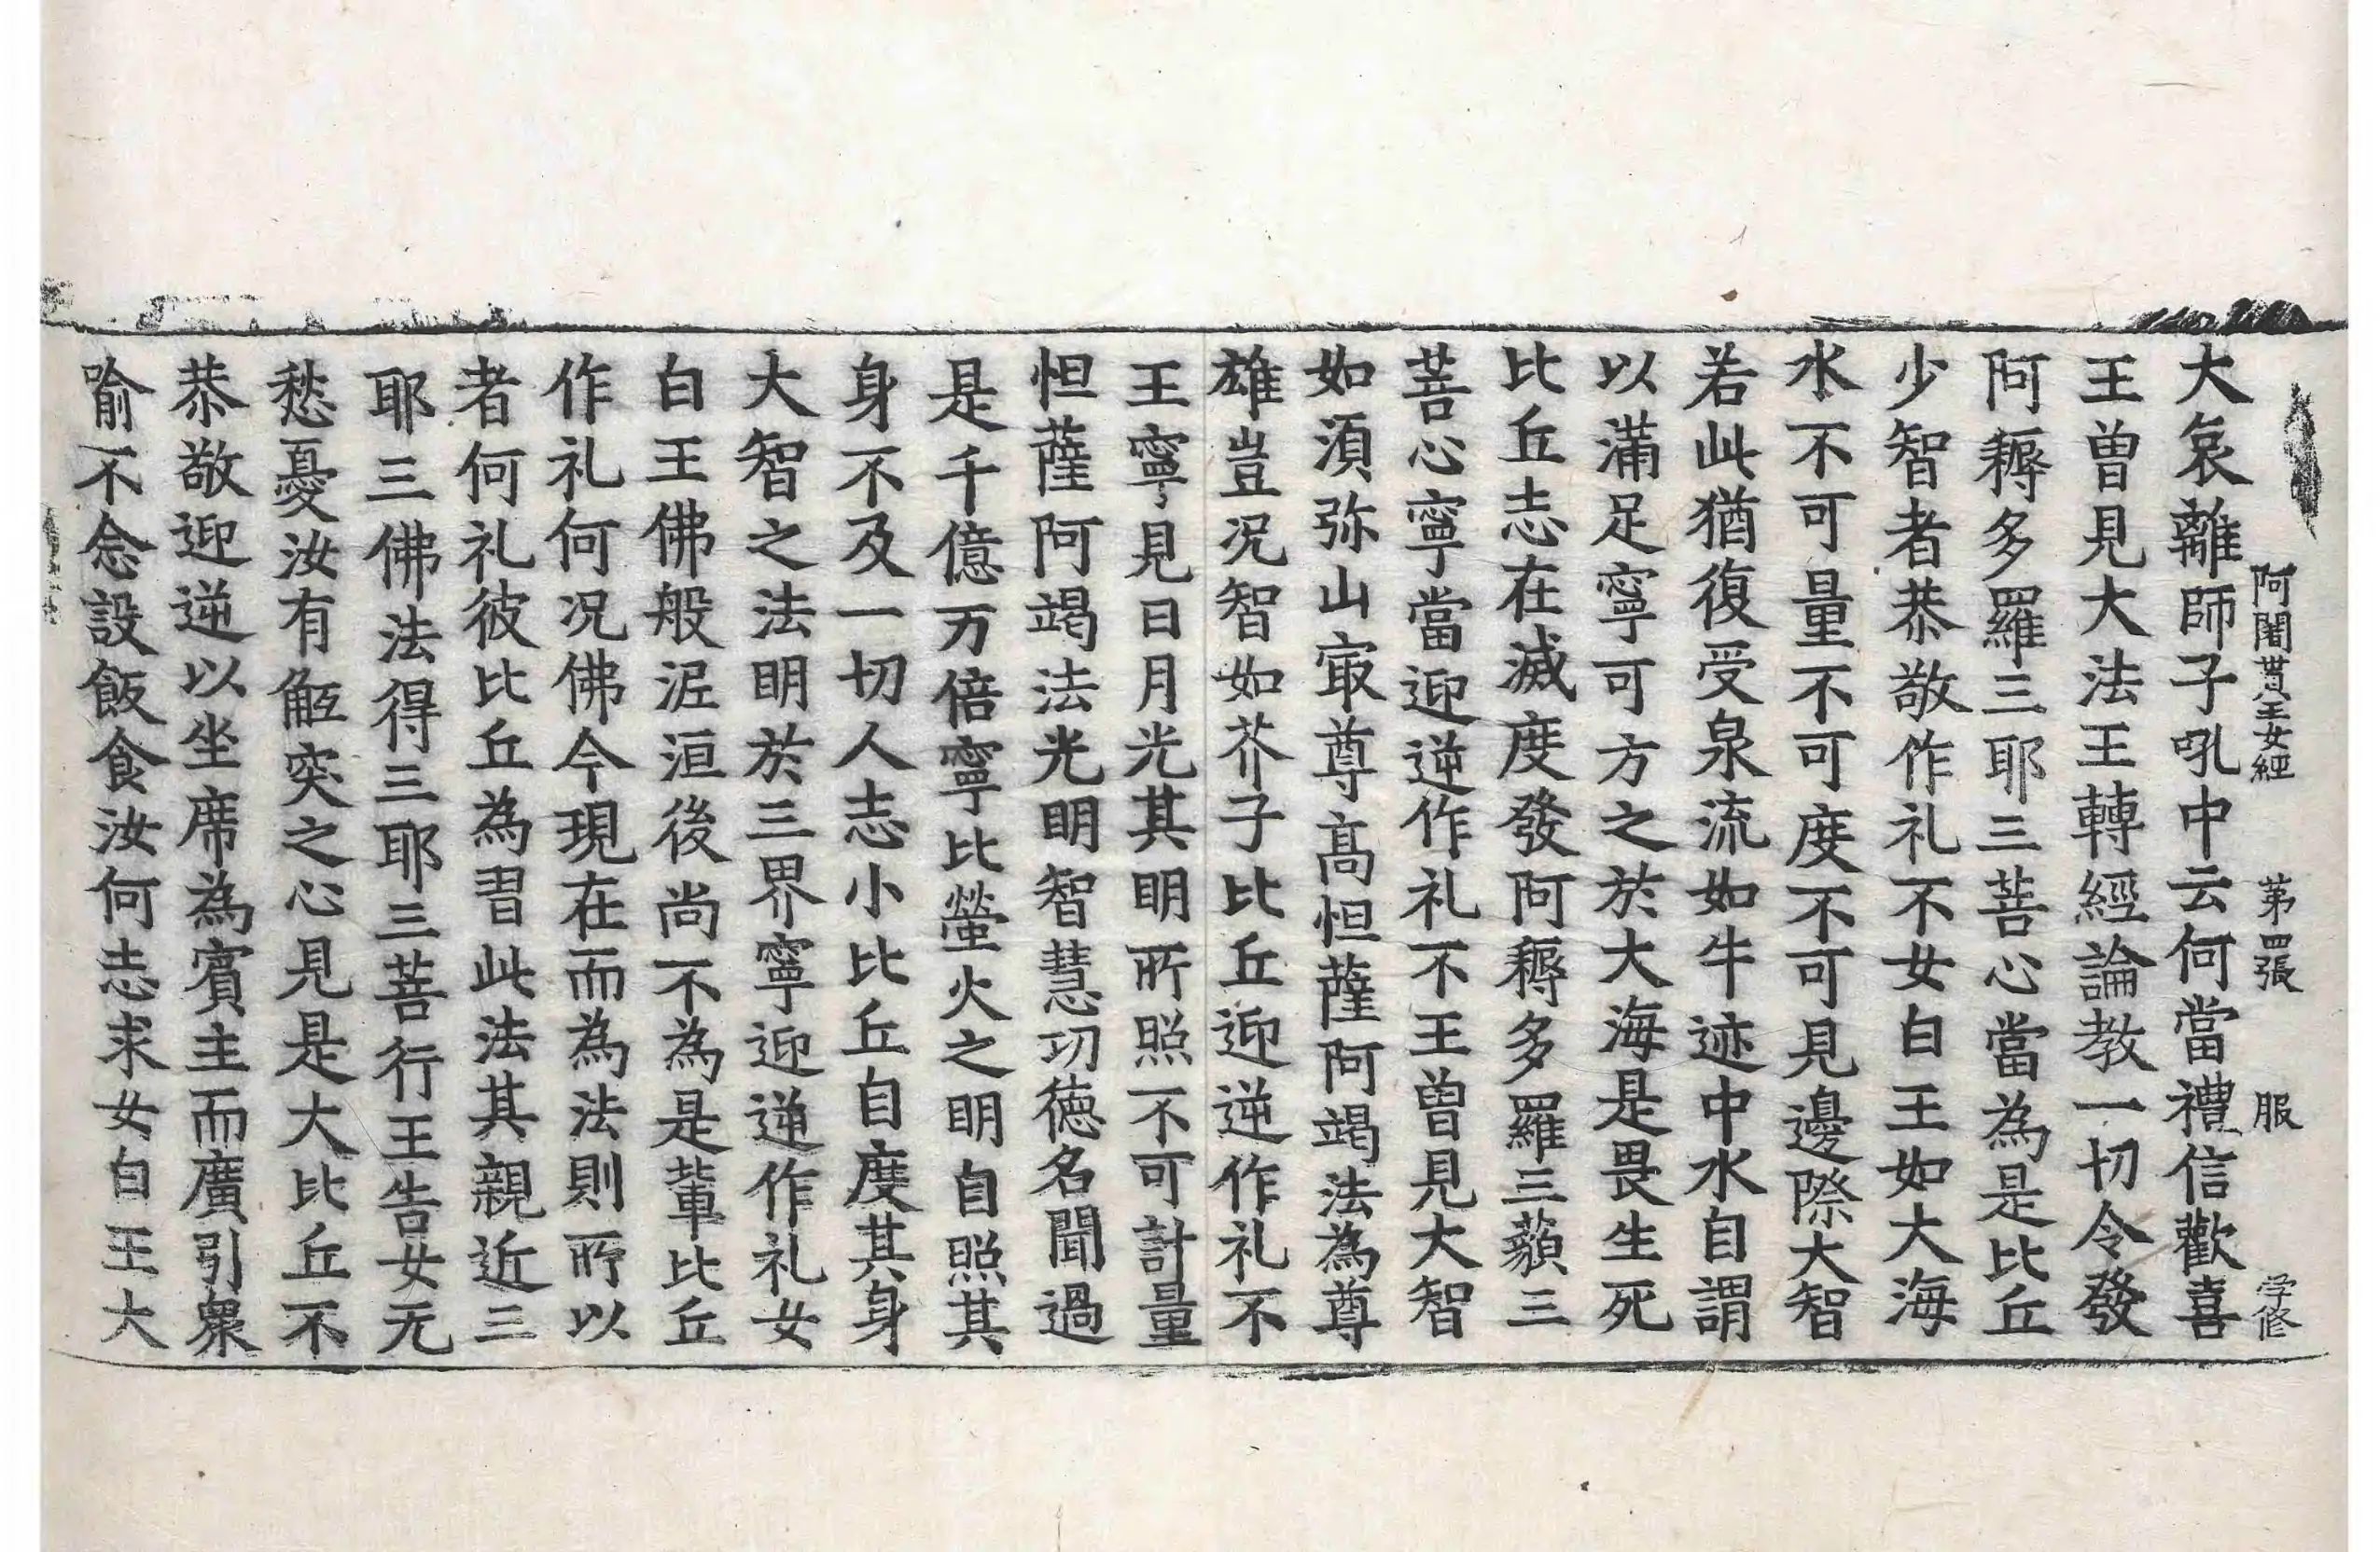 阿闍貰王女經 第四張 服 学修
大哀離師子吼中云何當禮信歡喜
王曽見大法王轉經論教一切令發
阿耨多羅三耶三菩心當為是比丘
少智者恭敬作礼不女白王如大海
水不可量不可度不可見邊際大智
若此猶復受泉流如牛迹中水自謂
以滿足寧可方之於大海是畏生死
比丘志在滅度發阿耨多羅三藐三
菩心寧當迎逆作礼不王曽見大智
如湏弥山㝡尊高怛薩阿竭法為尊
雄豈况智如芥子比丘迎逆作礼不
王寧見日月光其明所照不可計量
怛薩阿竭法光明智慧功德名聞過
是千億万倍寧比螢火之明自照其
身不及一切人志小比丘自度其身
大智之法明於三界寧迎逆作礼女
白王佛般泥洹後尚不為是輩比丘
作礼何况佛今現在而為法則所以
者何礼彼比丘為習此法其親近三
耶三佛法得三耶三菩行王告女无
愁憂汝有觝突之心見是大比丘不
恭敬迎逆以坐席為賓主而廣引衆
喻不念設飯食汝何志求女白王大